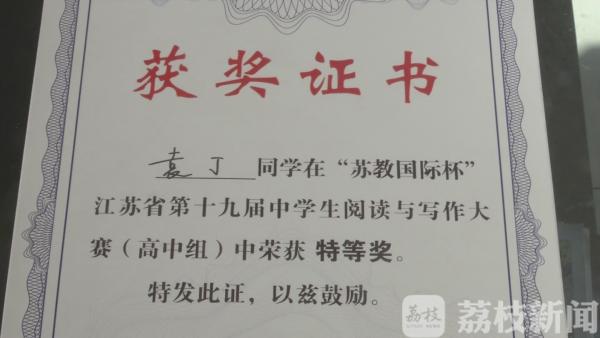 获奖证书
袁丁 同学在“苏教国际杯”
江苏省第十九届中学生阅读与写作大
赛（高中组）中荣获 特等奖。
特发此证，以兹鼓励。
荔枝 荔枝新闻